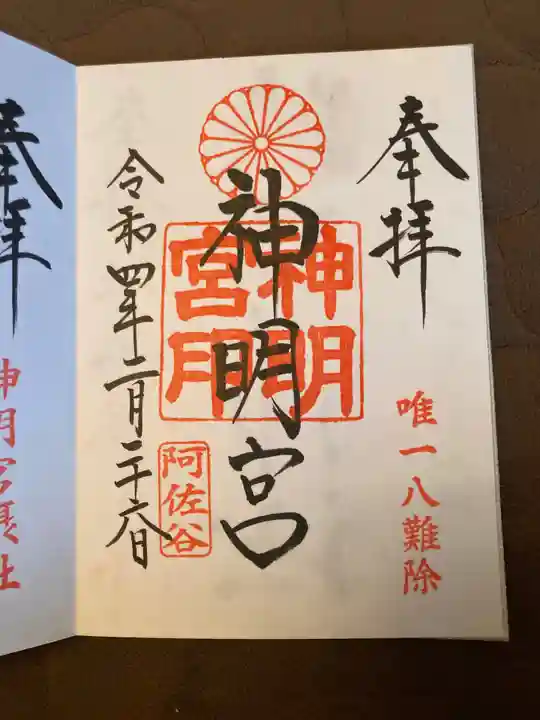 奉拝
唯一八難除
神明宮
神明宮印
阿佐谷
令和四年二月二十六日
奉拝
神明宮